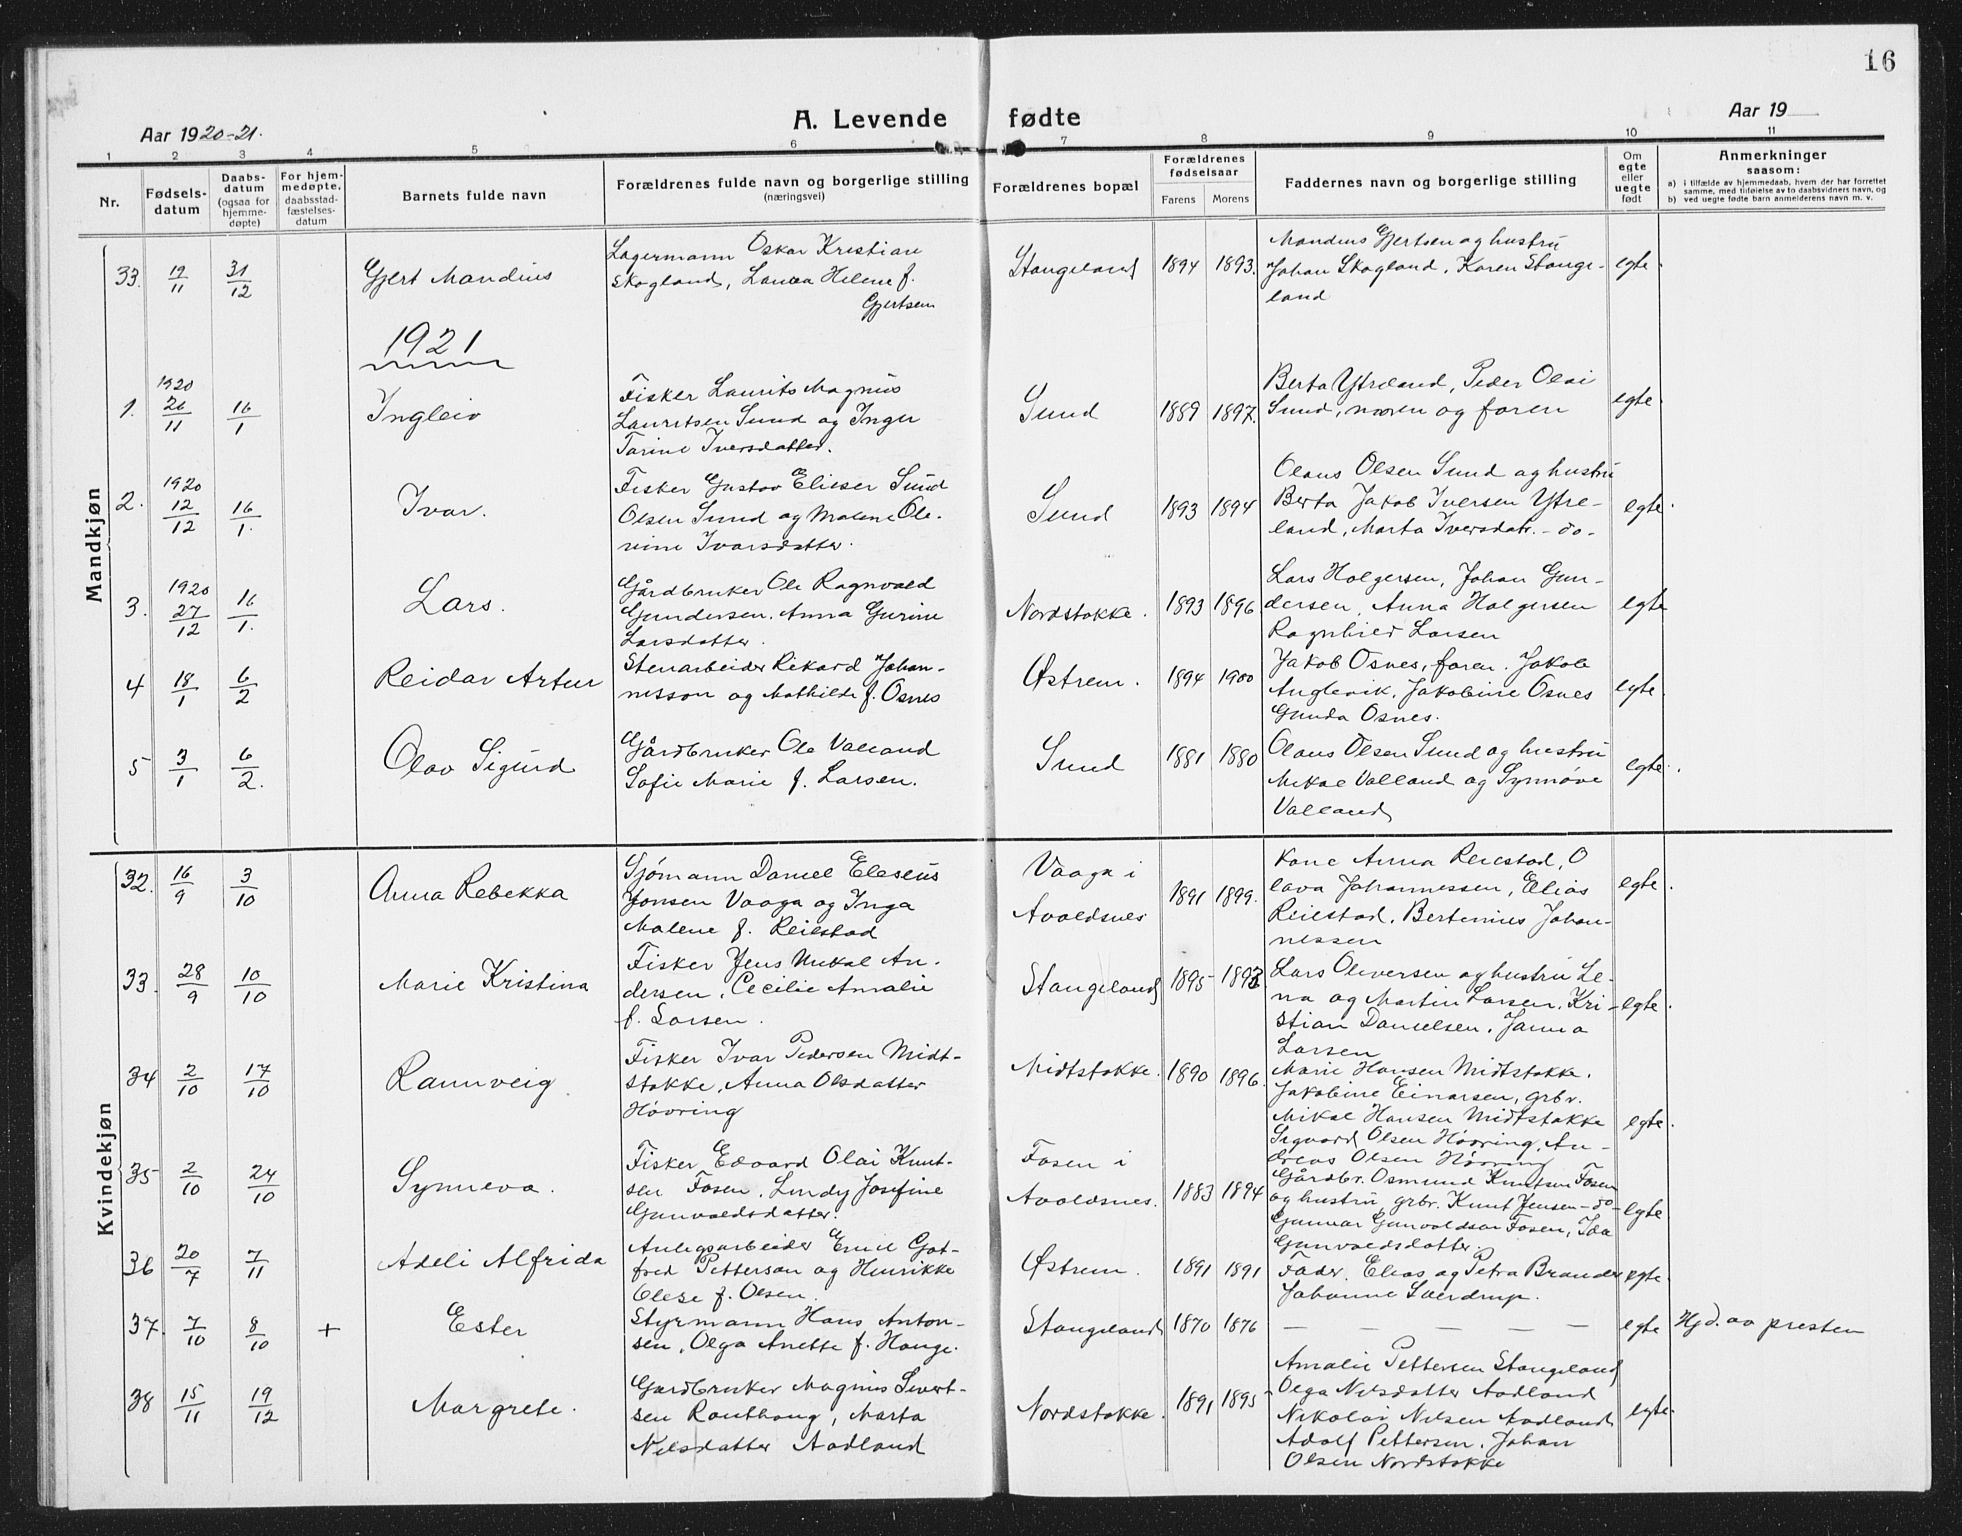 16
Aar 1920-21.
A. Levende fødte
Aar 19
1 2 3 4 5 6 7 8 9 10 11
Nr.
Fødsels-
datum
Daabs-
datum
(ogsaa for
hjemme-
døpte)
For hjem-
medøpte,
daabsstad-
fæstelses-
datum
Barnets fulde navn
Forældrenes fulde navn og borgerlige stilling
(næringsvei)
Forældrenes bopæl
Forældrenes
fødselsaar
Farens Morens
Faddernes navn og borgerlige stilling
Om
egte
eller
uegte
født
Anmerkninger
saasom:
a) i tilfælde av hjemmedaab, hvem der har forrettet
samme, med tilføielse av to daabsvidners navn, og
b) ved uegte fødte barn anmelderens navn m. v.
Mandkjøn
33. 19/11 31/12 Gjert Mandius
Lagermann Oskar Kristian
Skogland, Laura Helene f.
Gjertsen
Stangeland 1894 1893.
Mandius Gjertsen og hustru
Johan Skogland, Karen Stange-
land
egte.
1921
1. 1920 26/11 16/1 Ingleiv
Fisker Laurits Magnus
Lauritsen Sund og Inger
Tarine Iversdatter.
Sund 1889 1897.
Berta Ytreland, Peder Olai
Sund, moren og faren
egte.
2. 1920 12/12 16/1. Ivar.
Fisker Gustav Elieser Sund
Olsen Sund og Malene Ole-
vine Ivarsdatter.
Sund 1893 1894
Olaus Olsen Sund og hustru
Berta Jakob Iversen Ytre-
land, Marta Iversdatr. - do -
egte.
3. 1920 27/12 16/1. Lars.
Gårdbruker Ole Ragnvald
Gundersen. Anna Gurine
Larsdatter.
Nordstokke. 1893 1896.
Lars Holgersen, Johan Gun-
dersen, Anna Holgersen
Ragnhild Larsen
egte
4 18/1 6/2 Reidar Artur
Stenarbeider Rikard Johan-
nesson og Mathilde f. Osnes
Østrem. 1894 1900
Jakob Osnes, faren. Jakob
Anglevik, Jakobine Osnes
Gunda Osnes.
egte.
5 3/1 6/2. Olav Sigurd
Gårdbruker Ole Valland
Sofie Marie f. Larsen.
Sund 1881 1880
Olaus Olsen Sund og hustru
Mikal Valland og Synnøve
Valland
egte.
Kvindekjøn
32. 16/9 3/10 Anna Rebekka
Sjømann Daniel Eleseus
Jonsen Vaaga og Inga
Malene f. Reilstad
Vaaga i
Avaldsnes
1891 1899.
Kone Anna Reilstad, O
lava Johannessen, Elias
Reilstad, Bertinius Johan-
nessen
egte.
33. 28/9 10/10 Marie Kristina
Fisker Jens Mikal An-
dersen, Cecilie Amalie
f. Larsen.
Stangeland 1895 1893
Lars Oliversen og hustru Le-
na og Martin Larsen, Kri-
stian Danielsen, Janna
Larsen
egte.
34 2/10 17/10 Rannveig
Fisker Ivar Pedersen Midt-
stokke, Anna Olsdatter
Høvring
Midtstokke. 1890 1896.
Marie Hansen Midtstokke.
Jakobine Einarsen, grbr.
Mikal Hansen Midtstokke
Sigvard Olsen Høvring, An-
dreas Olsen Høvring
egte.
35 2/10 24/10 Synneva.
Fisker Edvard Olai Knut-
sen Fosen, Lindy Josefine
Gunvaldsdatter.
Fosen i
Avaldsnes.
1883 1894
Gårdbr. Osmund Knutsen Fosen
og hustru, grbr. Knut Jensen - do -
Gunnar Gunvaldsen Fosen, Ida
Gunvaldsdatter.
egte.
36 20/7 7/11 Adeli Alfrida
Anlegsarbeider Emil Got-
fred Petterson og Henrikke
Olese f. Olsen.
Østrem. 1891 1891
Fader. Elias og Petra Brandes
Johanne Sverdrup.
egte.
37. 7/10 8/10 + Ester
Styrmann Hans Anton-
sen, Olga Anette f. Hauge.
Stangeland 1870 1876
— — — — —
egte
Hjd. av presten
38 15/11 19/12 Margrete.
Gardbruker Magnus Sivert-
sen Rønthaug, Marta
Nilsdatter Aadland
Nordstokke. 1891 1895
Amalie Pettersen Stangeland
Olga Nilsdatter Aadland
Nikolai Nilsen Aadland
Adolf Pettersen, Johan
Olsen Nordstokke
egte.